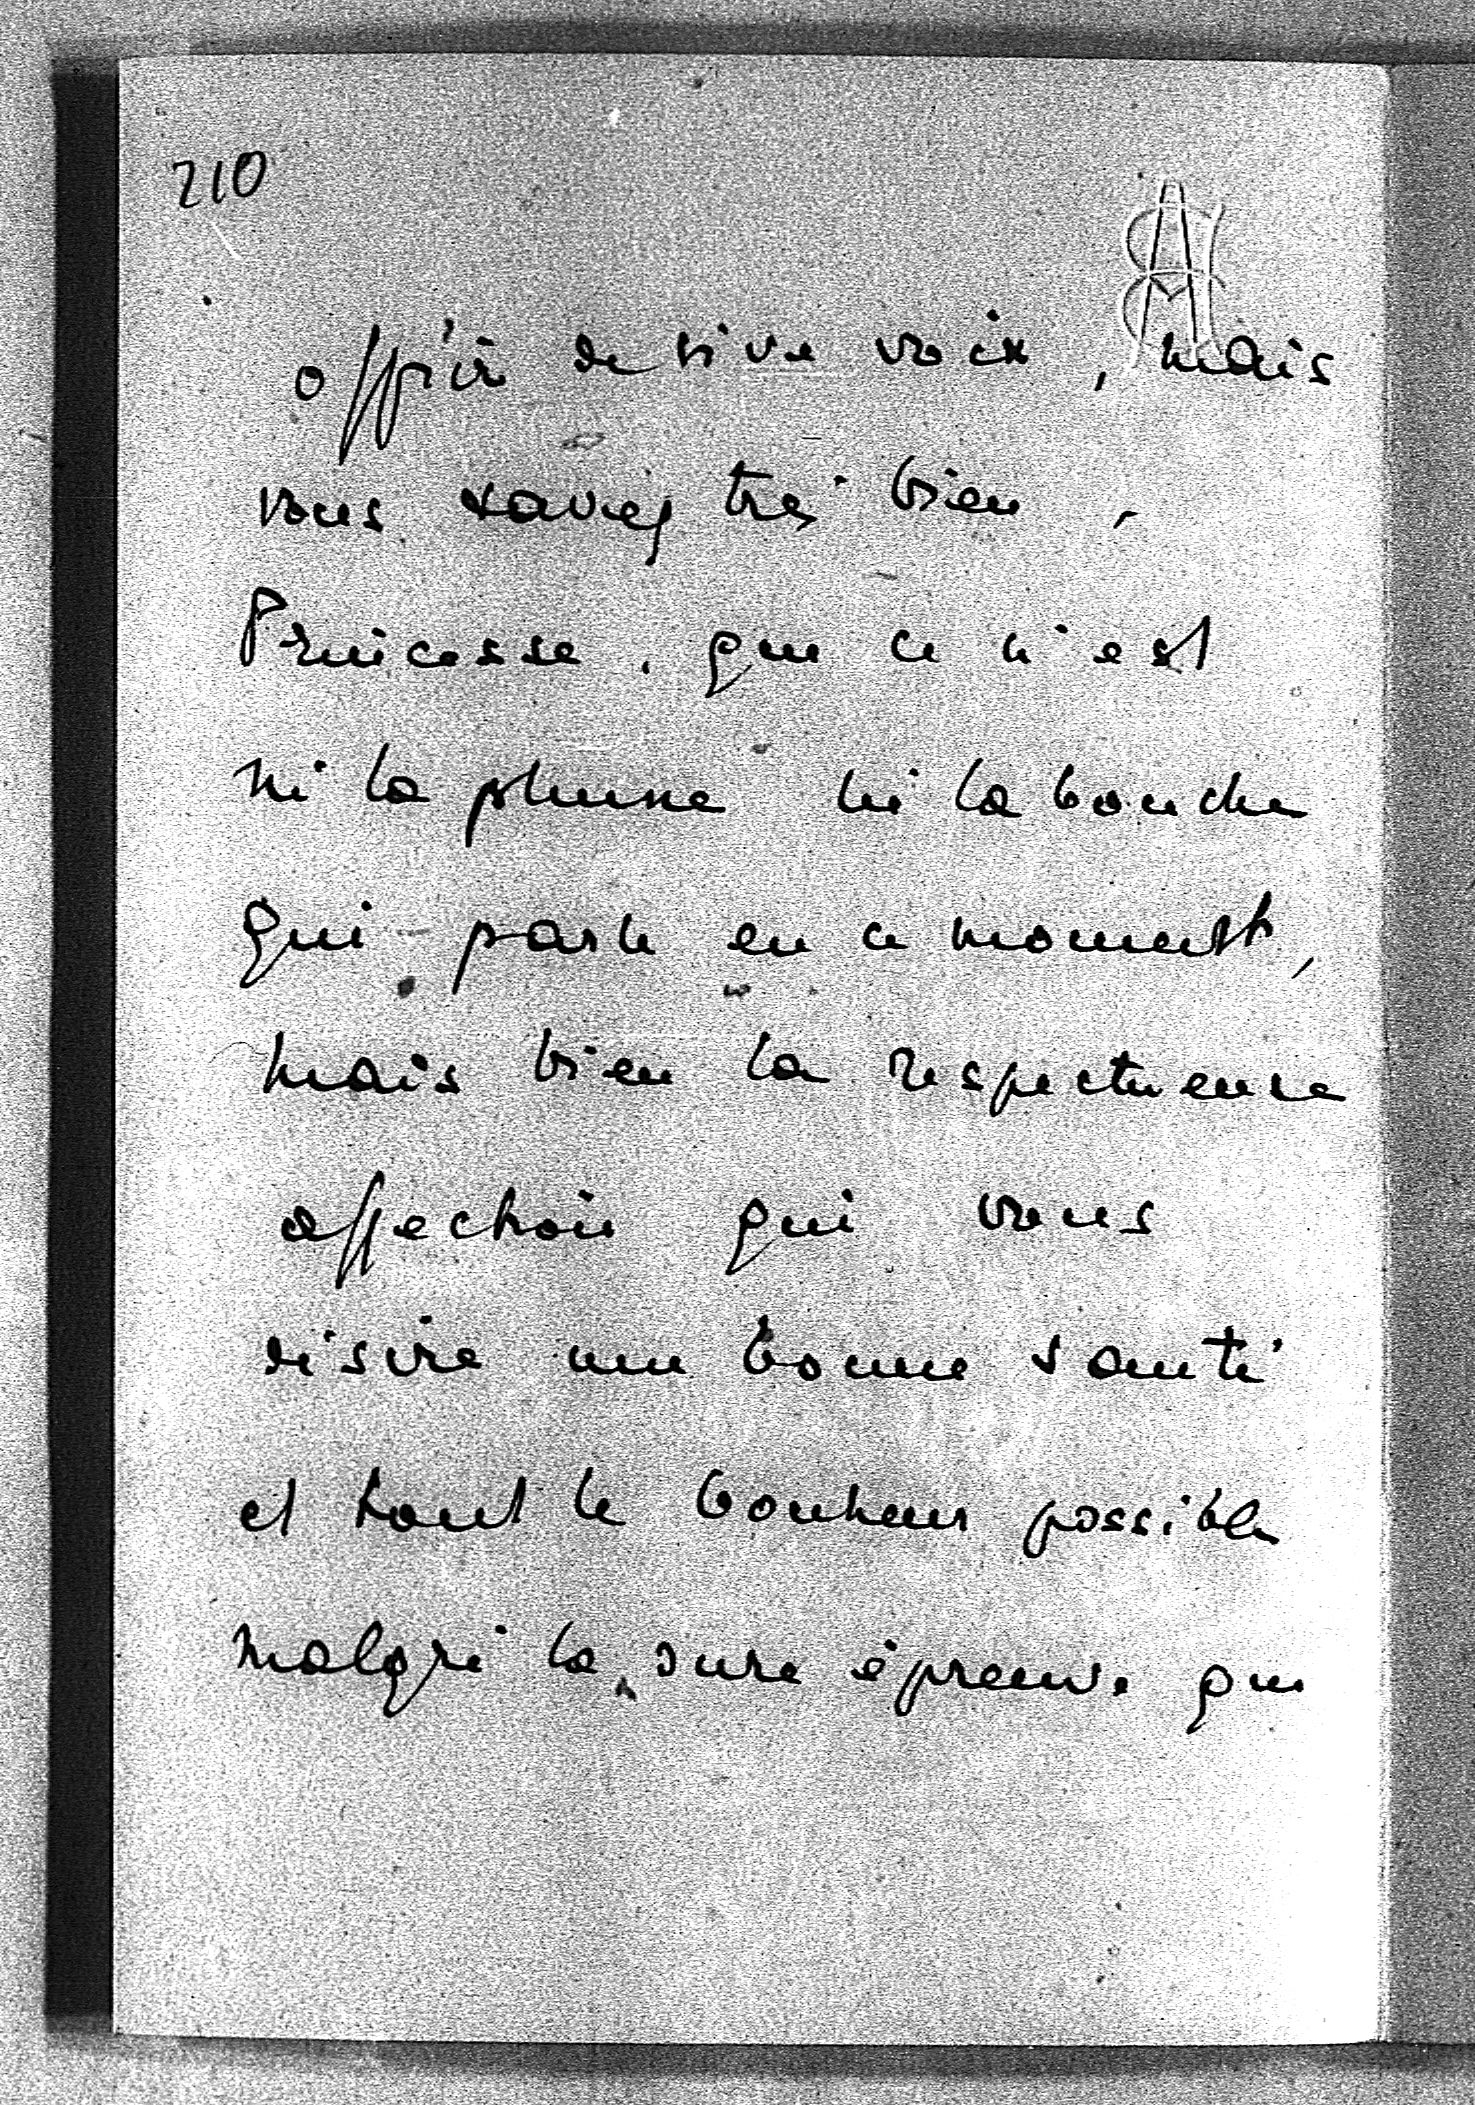 210
offrir de vive voix, mais
vous savez très bien,
Princesse, que ce n'est
ni la plume ni la bouche
qui parle en ce moment,
mais bien la respectueuse
affection qui vous
désire une bonne santé
et tout le bonheur possible
malgré la dure épreuve que